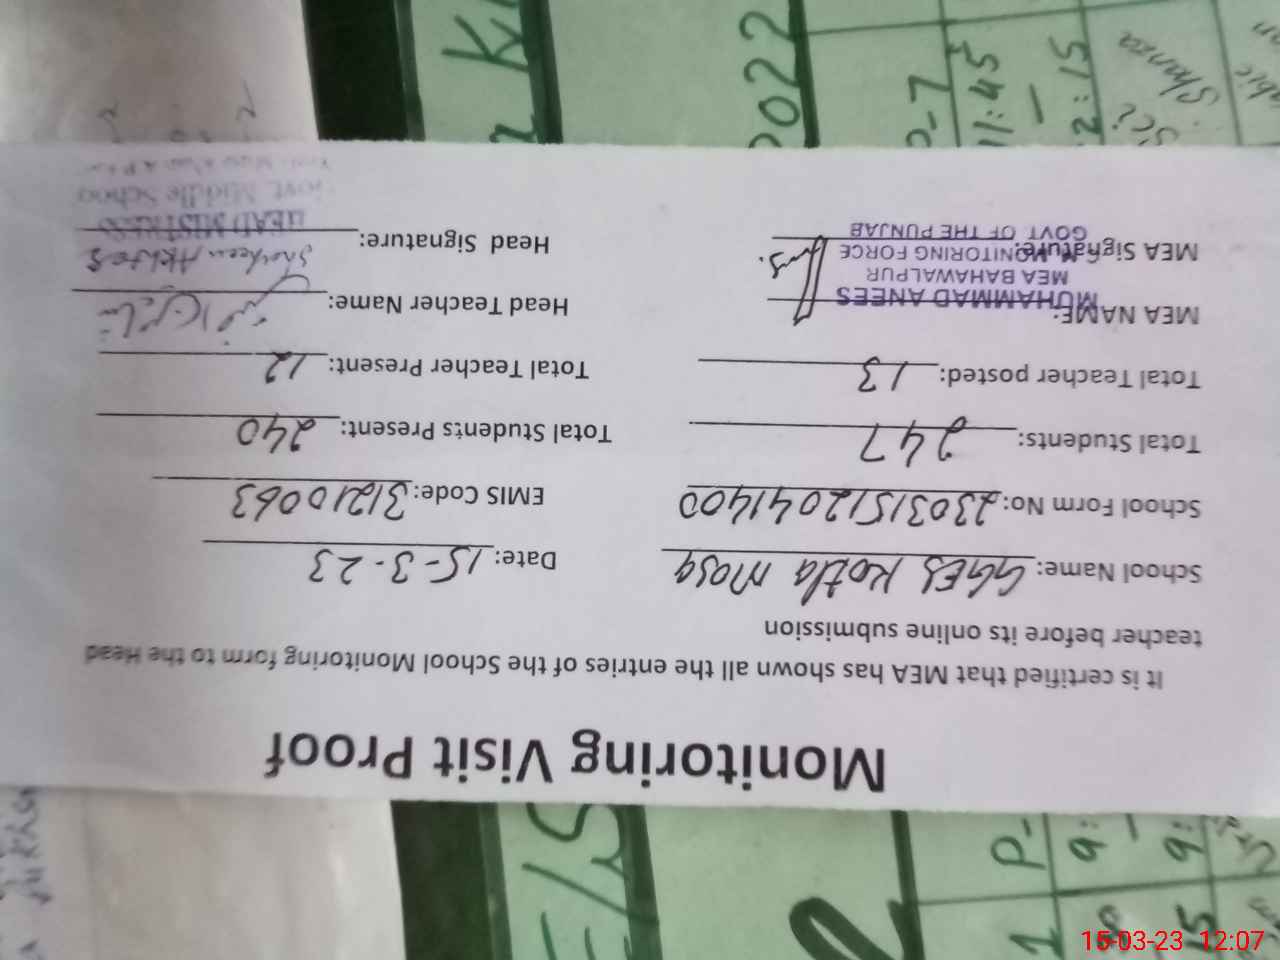 Monitoring Visit Proof
It is certified that MEA has shown all the entries of the School Monitoring form to the Head
teacher before its online submission
School Name: GGES Kotla Mosa Date: 15-3-23
School Form No: 23031512041400 EMIS Code: 31210063
Total Students: 247 Total Students Present: 240
Total Teacher posted: 13 Total Teacher Present: 12
MEA NAME: Head Teacher Name:
MUHAMMAD ANEES
MEA BAHAWALPUR
MONITORING FORCE
GOVT OF THE PUNJAB
MEA Signature: Head Signature:
HEAD MISTRESS
Govt. Middle School
2022
P-7
11:45
-
2:15
Sci
Shanza
P-
9:
-
9:
1
15
15-03-23 12:07